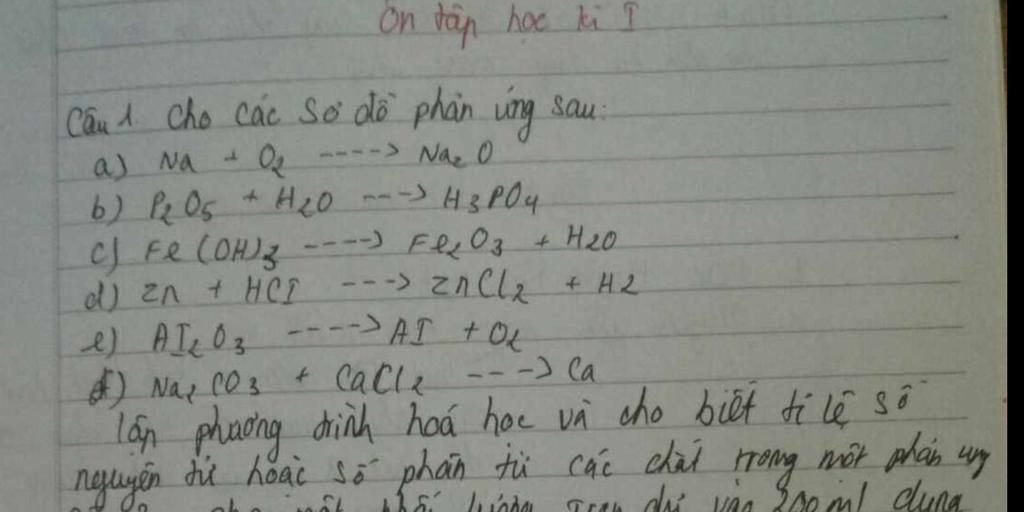 Ôn tập học kì I
Câu 1. Cho các sơ đồ phản ứng sau:
a) Na + O2 ----> Na2O
b) P2O5 + H2O ---> H3PO4
c) Fe(OH)3 ----> Fe2O3 + H2O
d) Zn + HCl ---> ZnCl2 + H2
e) Al2O3 ----> Al + O2
f) Na2CO3 + CaCl2 ---> Ca
lập phương trình hoá học và cho biết tỉ lệ số
nguyên tử hoặc số phân tử các chất trong một phản ứng
cho một khối lượng vào 200ml dung